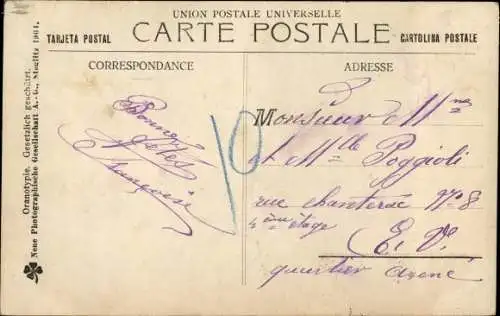 UNION POSTALE UNIVERSELLE
TARJETA POSTAL
CARTE POSTALE
CARTOLINA POSTALE
CORRESPONDANCE
ADRESSE
Bonnes
fêtes
Françoise
10
Monsieur Mme
et Mlle Poggioli
rue chanterac No 8
4ième étage
E. V.
quartier
Oranotypie. Gesetzlich geschützt.
Neue Photographische Gesellschaft A.-G., Steglitz 1904.